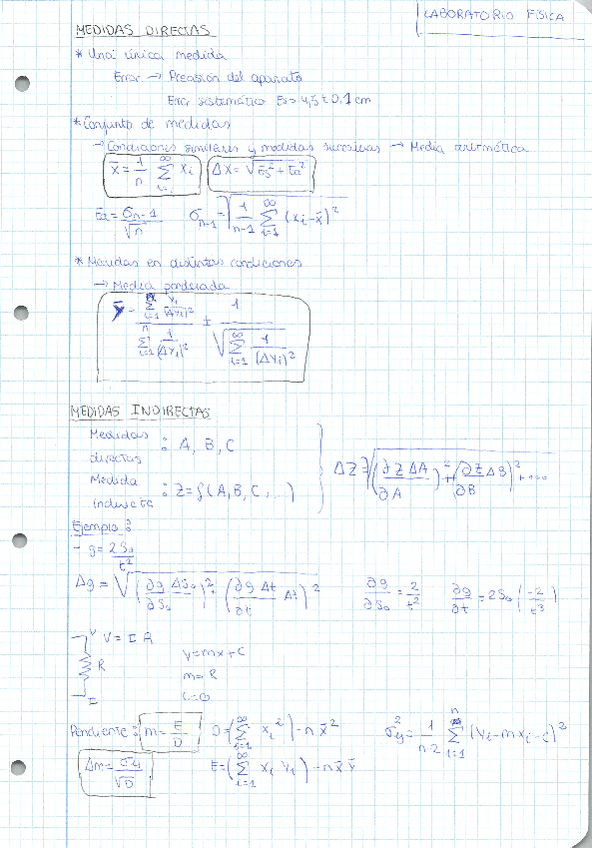 LABORATORIO FÍSICA
MEDIDAS DIRECTAS
* Una única medida
Error → Precisión del aparato
Error sistemático Es = 4,5 ± 0,1 cm
* Conjunto de medidas
→ Condiciones similares y medidas sucesivas → Media aritmética
x̄ = 1/n ∑_{i=1}^{∞} xi   Δx = √(Es² + Ea²)
Ea = σn-1/√n   σn-1 = √(1/(n-1) ∑_{i=1}^{∞} (xi - x̄)²)
* Medidas en distintas condiciones
→ Media ponderada
ȳ = (∑_{i=1}^{n} yi/(Δyi)²) / (∑_{i=1}^{n} 1/(Δyi)²) ± 1/√(∑_{i=1}^{∞} 1/(Δyi)²)
MEDIDAS INDIRECTAS
Medidas directas : A, B, C
Medida indirecta : Z = f(A, B, C, ...)
ΔZ = √((∂Z ΔA/∂A)² + (∂Z/∂B ΔB)² + ....
Ejemplo :
- g = 2S₀/t²
Δg = √((∂g ΔS₀/∂S₀)² + (∂g Δt/∂t Δt)²   ∂g/∂S₀ = 2/t²   ∂g/∂t = 2S₀(-2/t³)
V   V = I R
R   y = mx + c
m = R
I   c = 0
Pendiente : m = E/D   D = (∑_{i=1}^{∞} xi²) - n x̄²   σy² = 1/(n-2) ∑_{i=1}^{n} (yi - mxi - c)²
Δm = σy/√D   E = (∑_{i=1}^{∞} xi yi) - n x̄ ȳ